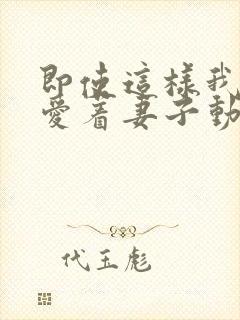 即使這樣我
愛着妻子動
代玉彪